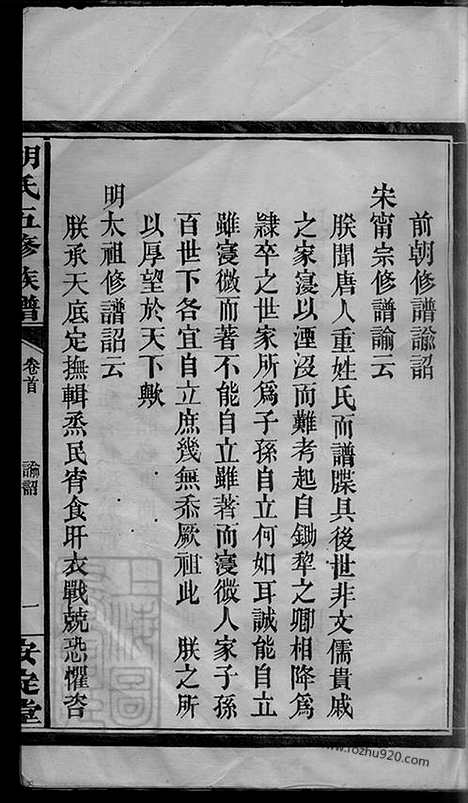 前朝修譜諭詔
宋甯宗修譜諭云
朕聞唐人重姓氏而譜牒具後世非文儒貴戚
之家寖以湮沒而難考起自鋤犂之卿相降爲
隷卒之世家所爲子孫自立何如耳誠能自立
雖寖微而著不能自立雖著而寖微人家子孫
百世下各宜自立庶幾無忝厥祖此　朕之所
以厚望於天下歟
明太祖修譜詔云
朕承天底定撫輯烝民宵食旰衣戰兢恐懼咨
胡氏五修族譜
卷首
諭詔
一
安定堂
www.fozhu920.com